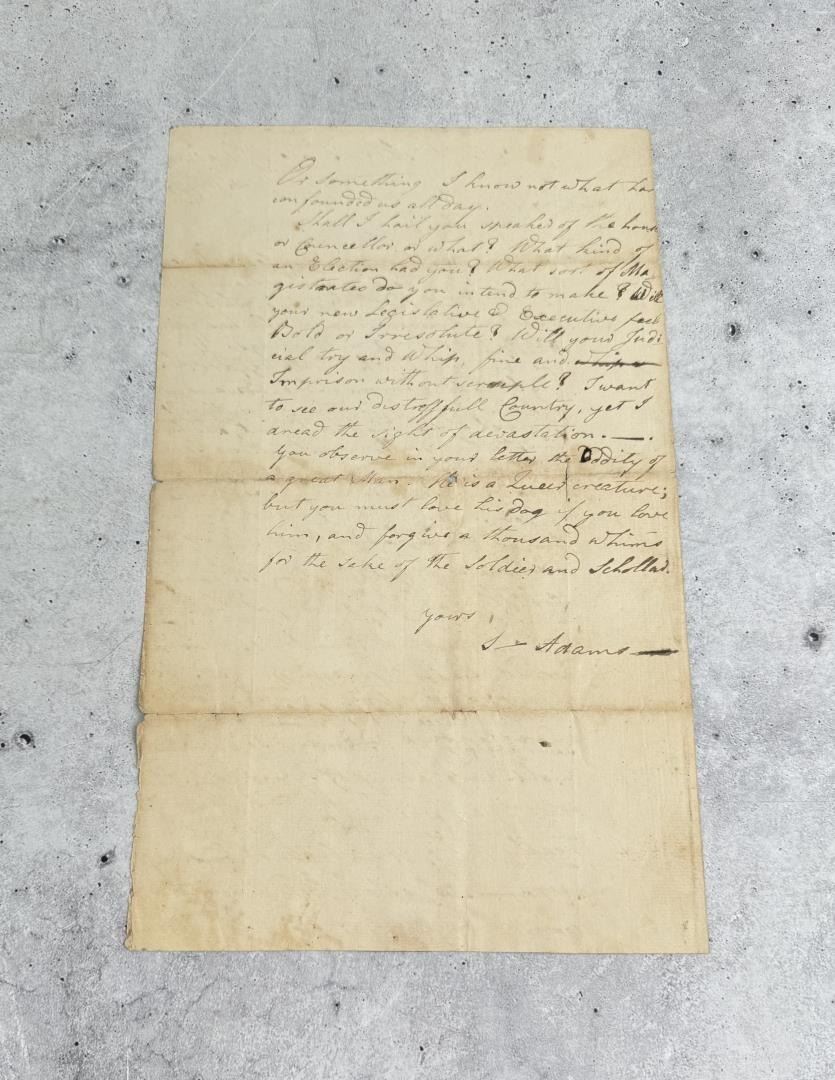 Or something I know not what has
confounded us all day.
Shall I hail you speaker of the house
or Councellor or what? What kind of
an Election had you? What sort of Ma
gistrates do you intend to make? Will
your new Legislative & Executive feel
Bold or Irresolute? Will your Judi
cial try and Whip, fine and whip
Imprison without scruple? I want
to see our distressfull Country, yet I
dread the sight of devastation. —.
You observe in your letter the Oddity of
a great Man. He is a Queer creature;
but you must love his dog if you love
him, and forgive a thousand whims
for the sake of the Soldier and Schollar.
Yours
S — Adams —